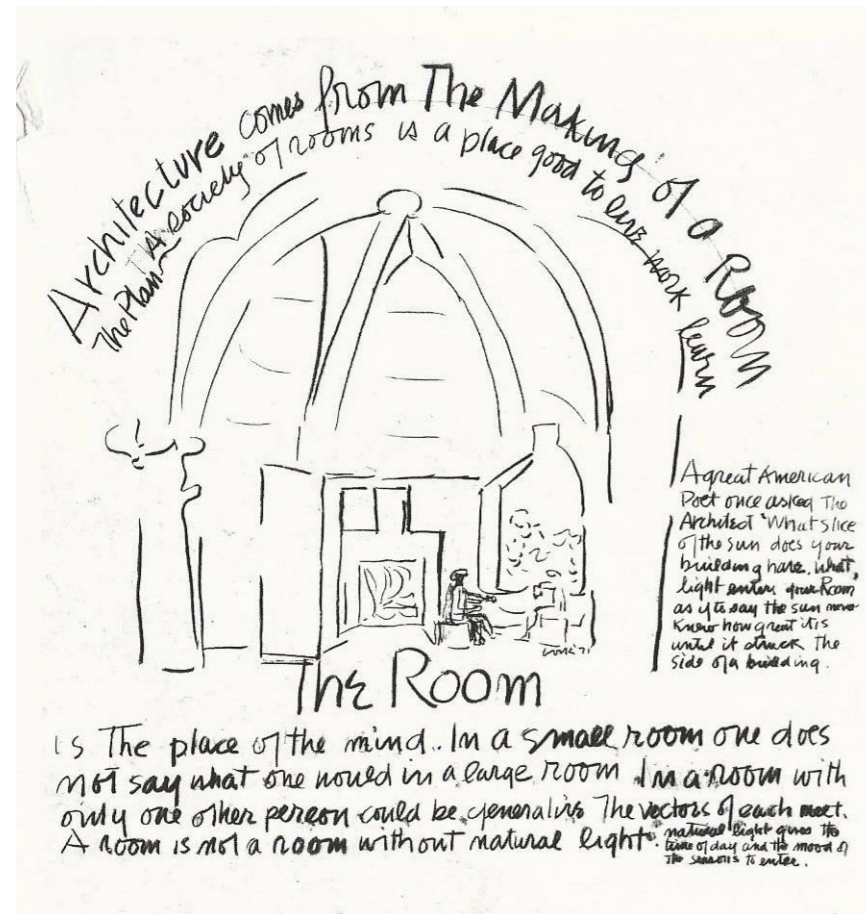 Architecture comes from The Making of a Room
The Plan A society of rooms is a place good to live work learn
A great American
Poet once asked the
Architect 'What slice
of the sun does your
building have. What
light enters your Room
as if to say the sun never
knew how great it is
until it struck the
side of a building.
The Room
is the place of the mind. In a small room one does
not say what one would in a large room. In a room with
only one other person could be generative. The vectors of each meet.
A room is not a room without natural light.
natural light gives the
time of day and the mood of
the seasons to enter.